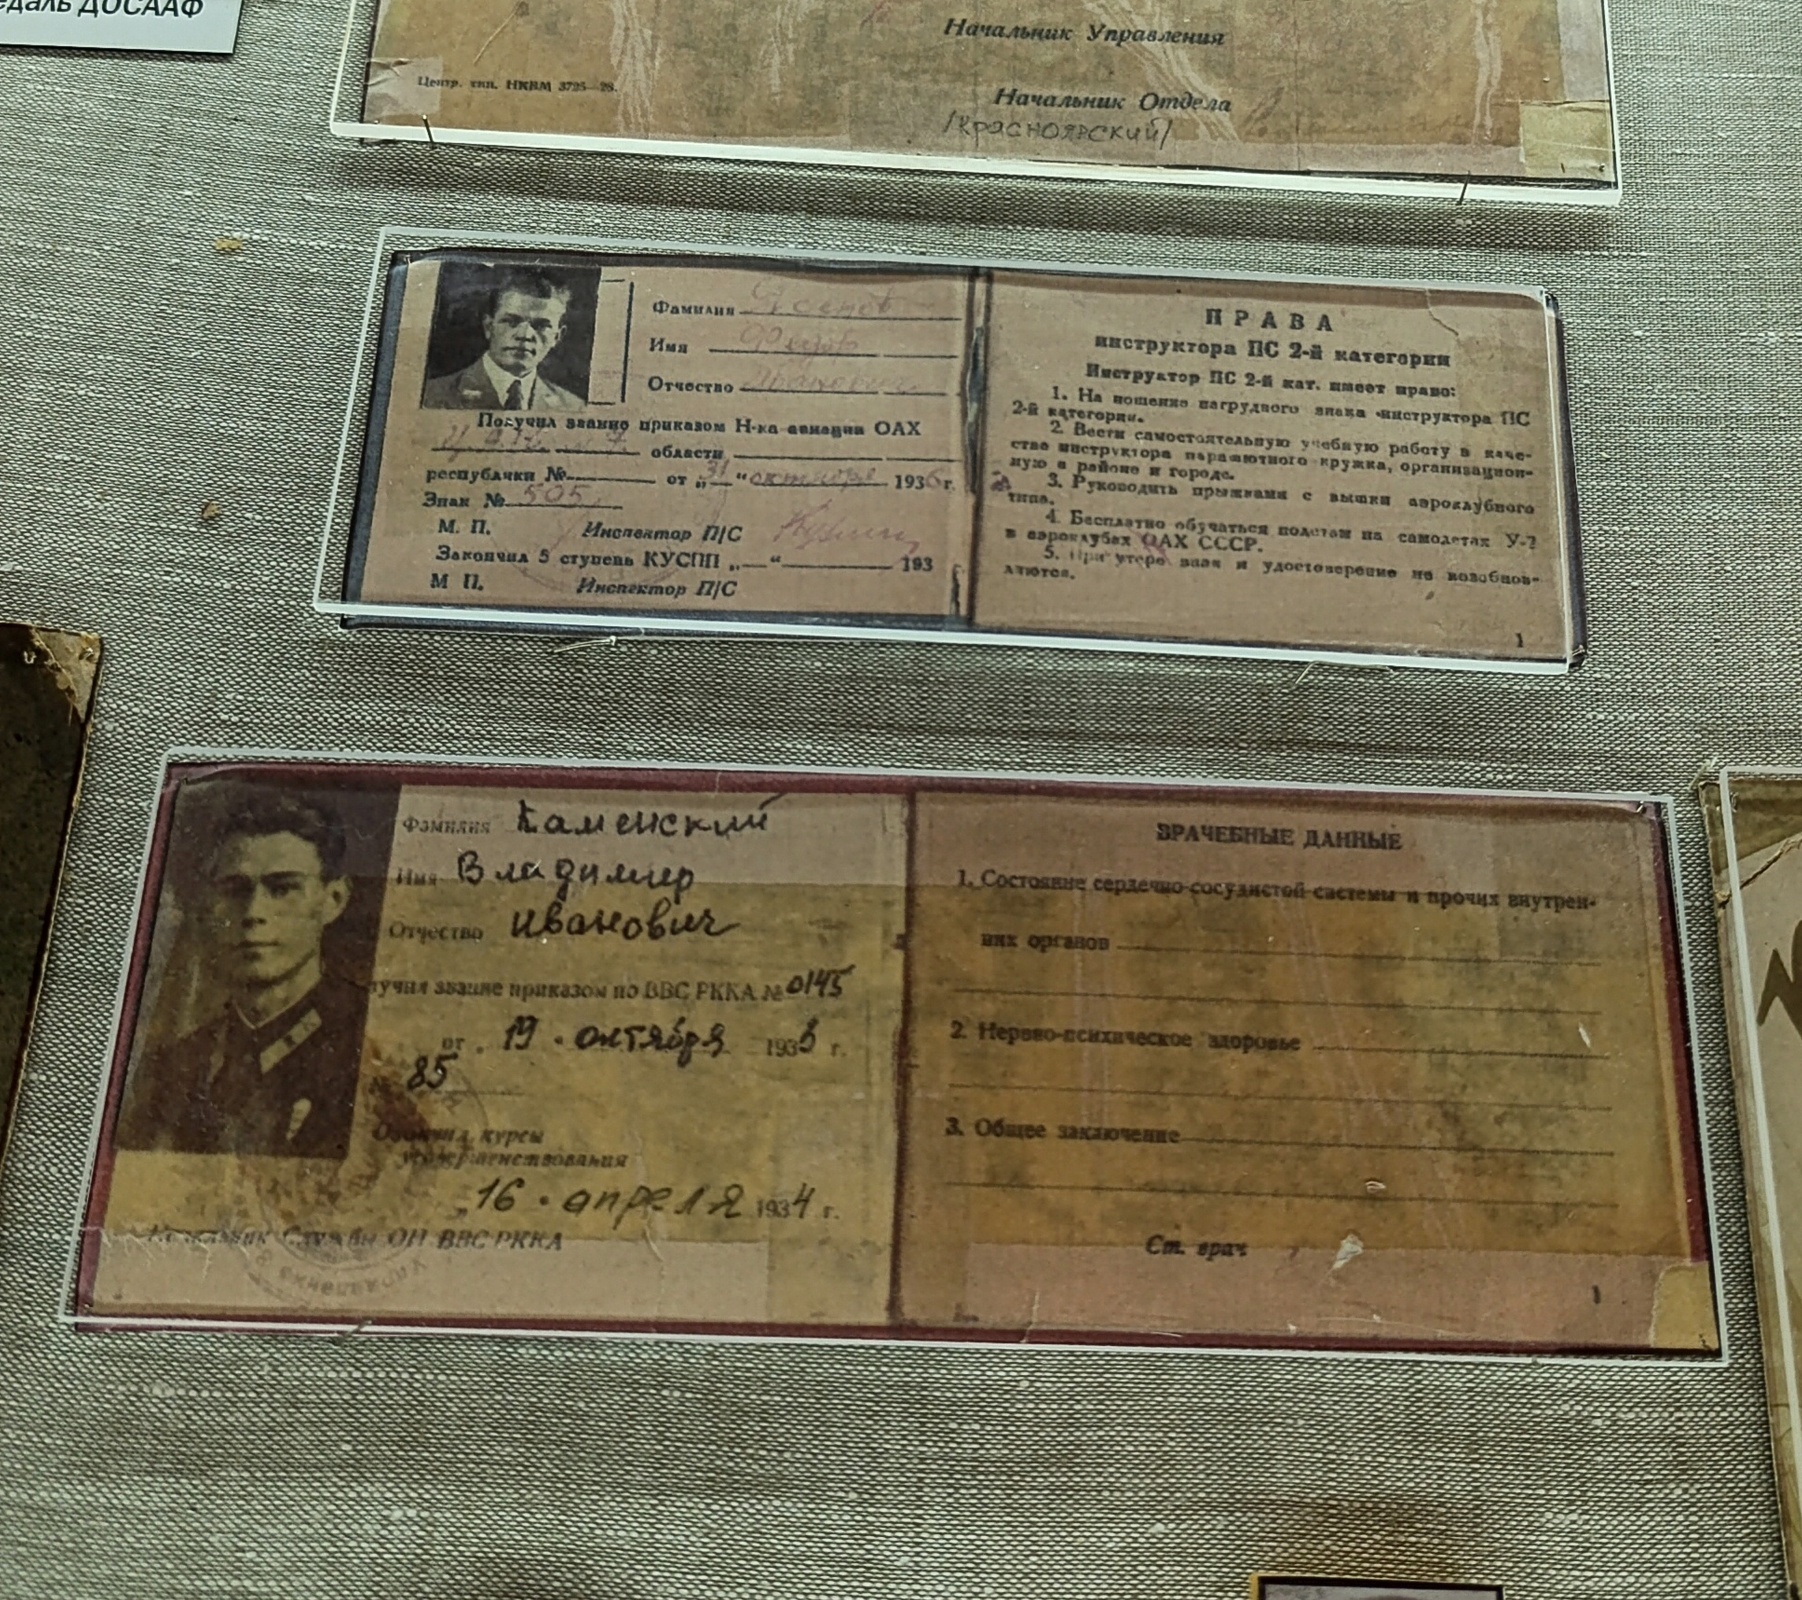 едаль ДОСААФ
Начальник Управления
Центр. тип. НКВМ 3725—28.
Начальник Отдела
/Красноярский/
Фамилия
Имя Федор
Отчество Иванович
Получил звание приказом Н-ка авиации ОАХ
области
республики № от „31“ октября 1936 г.
Знак № 505
М. П. Инспектор П/С
Закончил 5 ступень КУСПП „ “ 193
М П. Инспектор П/С
ПРАВА
инструктора ПС 2-й категории
Инструктор ПС 2-й кат. имеет право:
1. На ношение нагрудного знака инструктора ПС
2-й категории.
2. Вести самостоятельную учебную работу в каче-
стве инструктора парашютного кружка, организацион-
ную в районе и городе.
3. Руководить прыжками с вышки аэроклубного
типа.
4. Бесплатно обучаться полетам на самолетах У-2
в аэроклубах ОАХ СССР.
5. При утере знак и удостоверение не возобнов-
ляются.
1
Фамилия Каменский
Имя Владимир
Отчество Иванович
учил звание приказом по ВВС РККА № 0145
от 19 октября 1933 г.
85
курсы
усовершенствования
„16 апреля 1934 г.
Начальник Службы ОН ВВС РККА
ВРАЧЕБНЫЕ ДАННЫЕ
1. Состояние сердечно-сосудистой системы и прочих внутрен-
них органов
2. Нервно-психическое здоровье
3. Общее заключение
Ст. врач
1